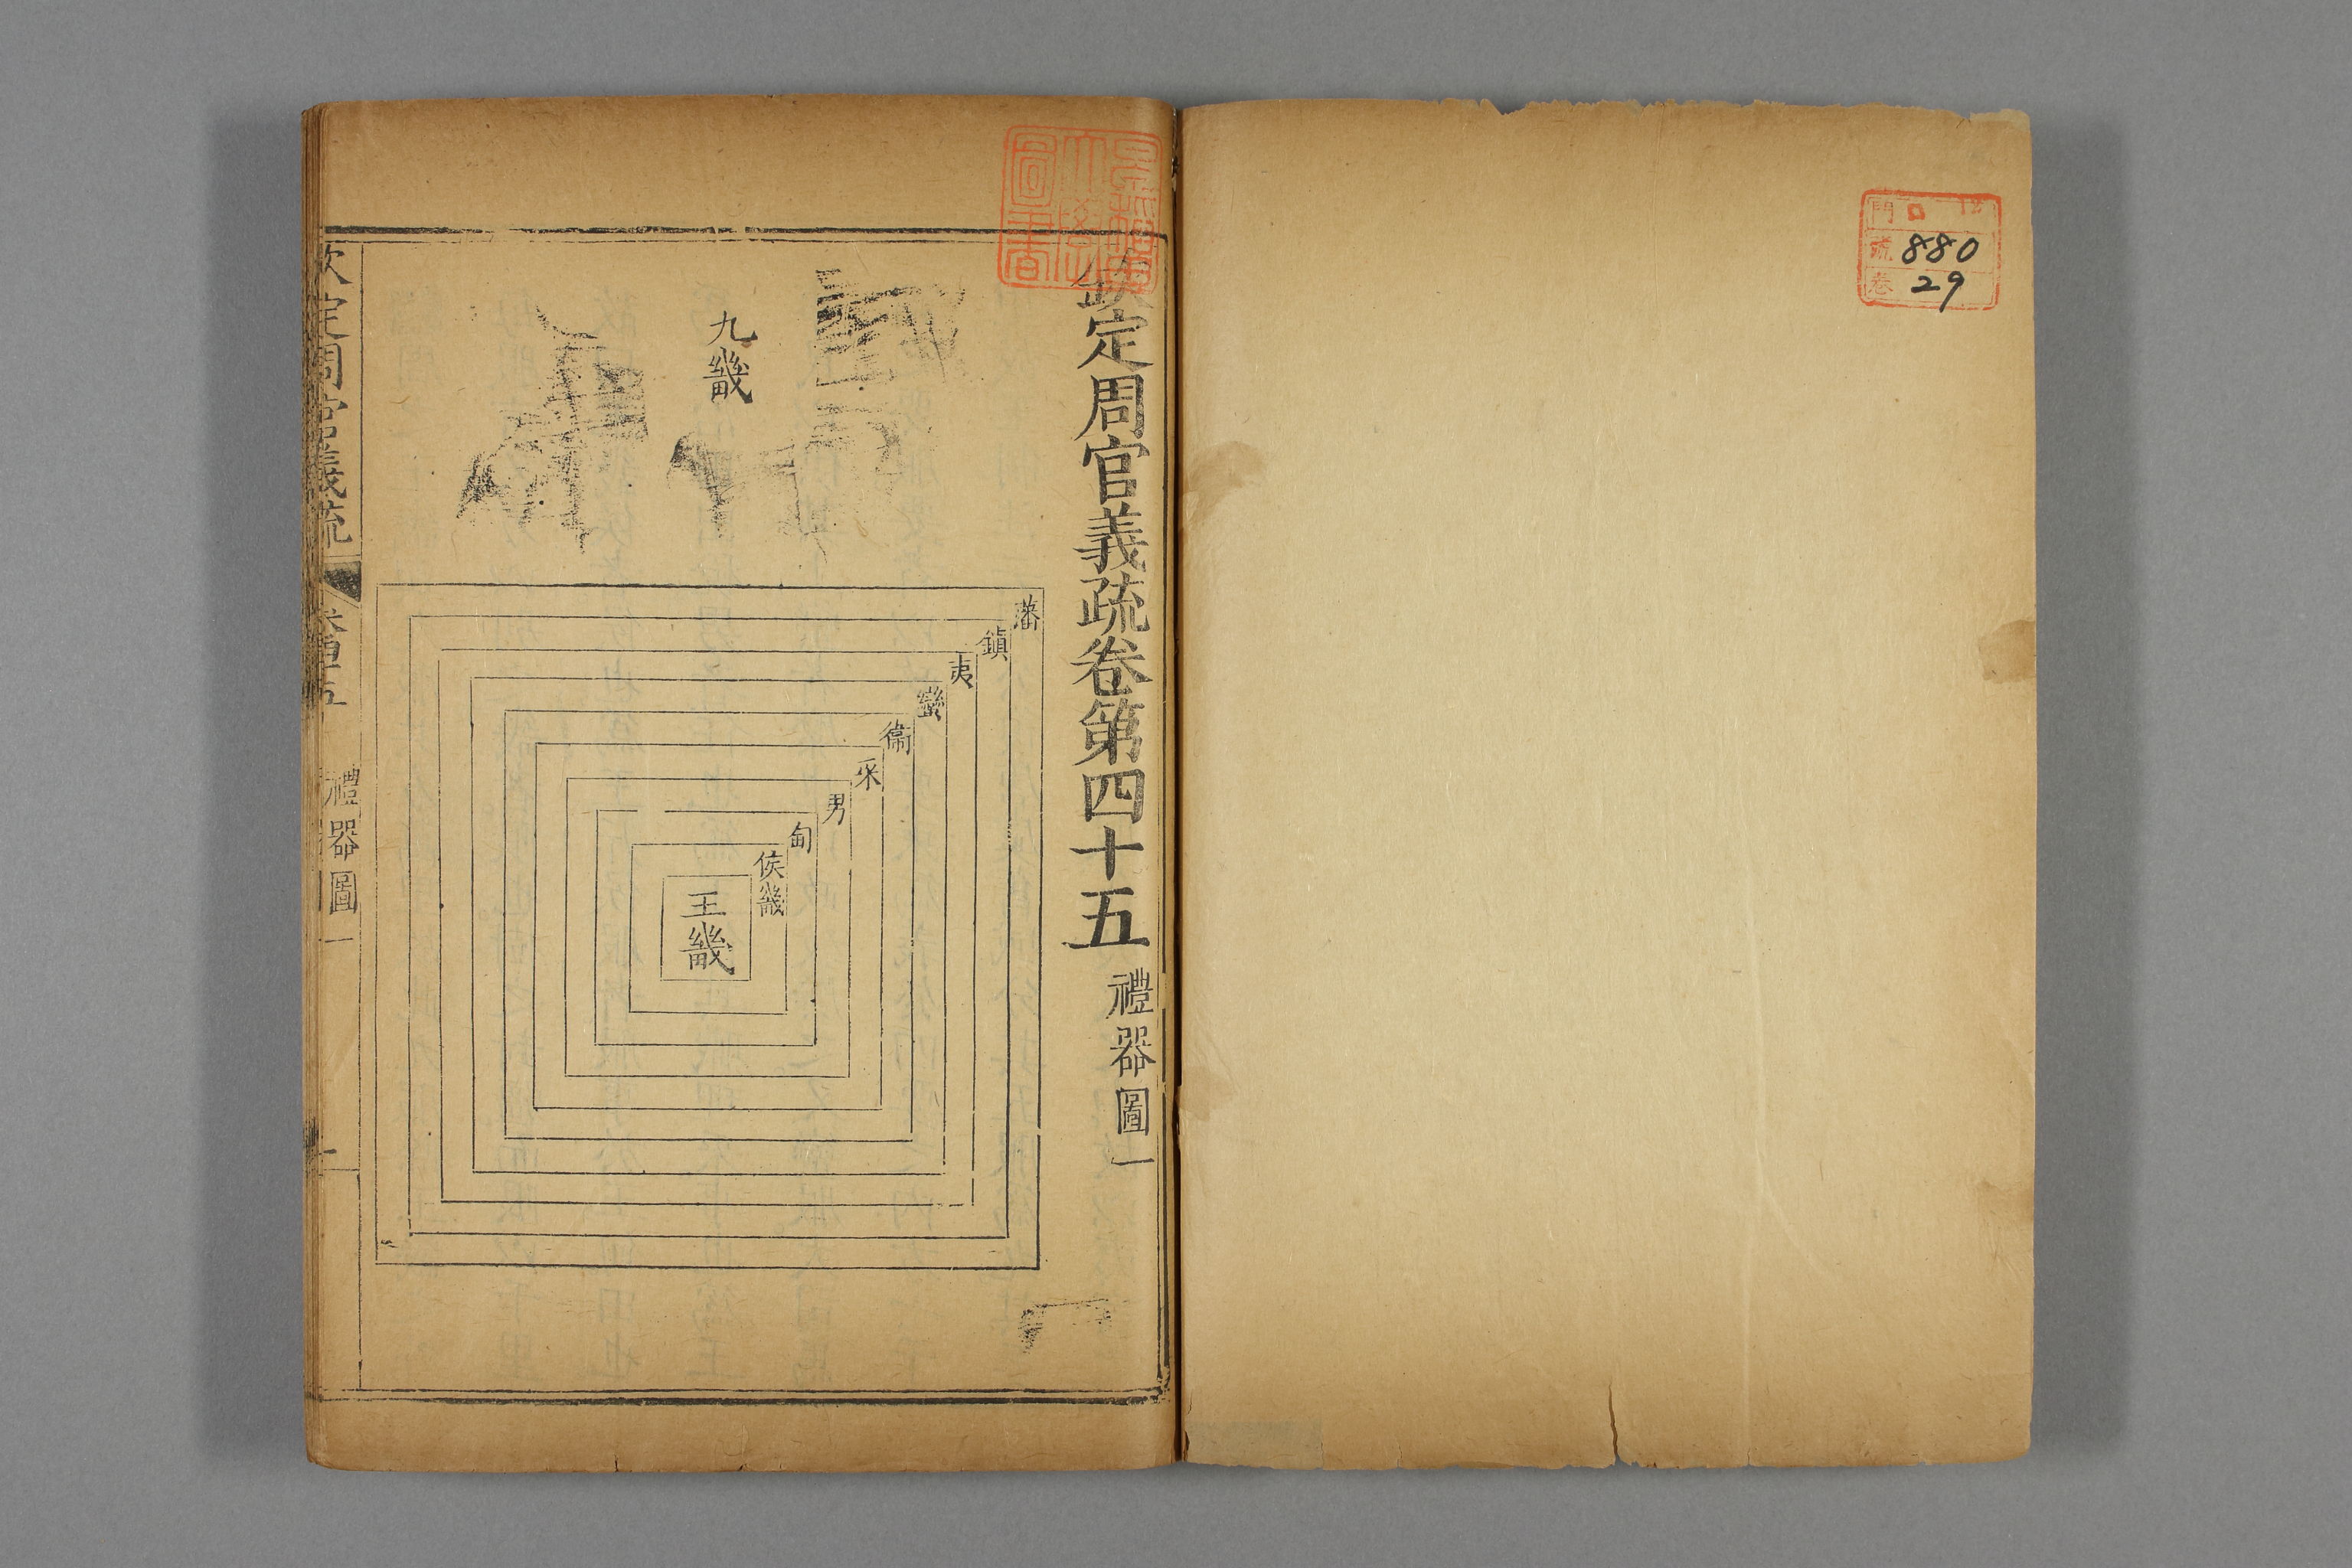 門 ロ 12
號 880
卷 29
早稻田
大學
圖書
欽定周官義疏卷第四十五 禮器圖一
九畿
蕃
鎮
夷
蠻
衞
采
男
甸
侯畿
王畿
欽定周官義疏 卷四十五 禮器圖一 一